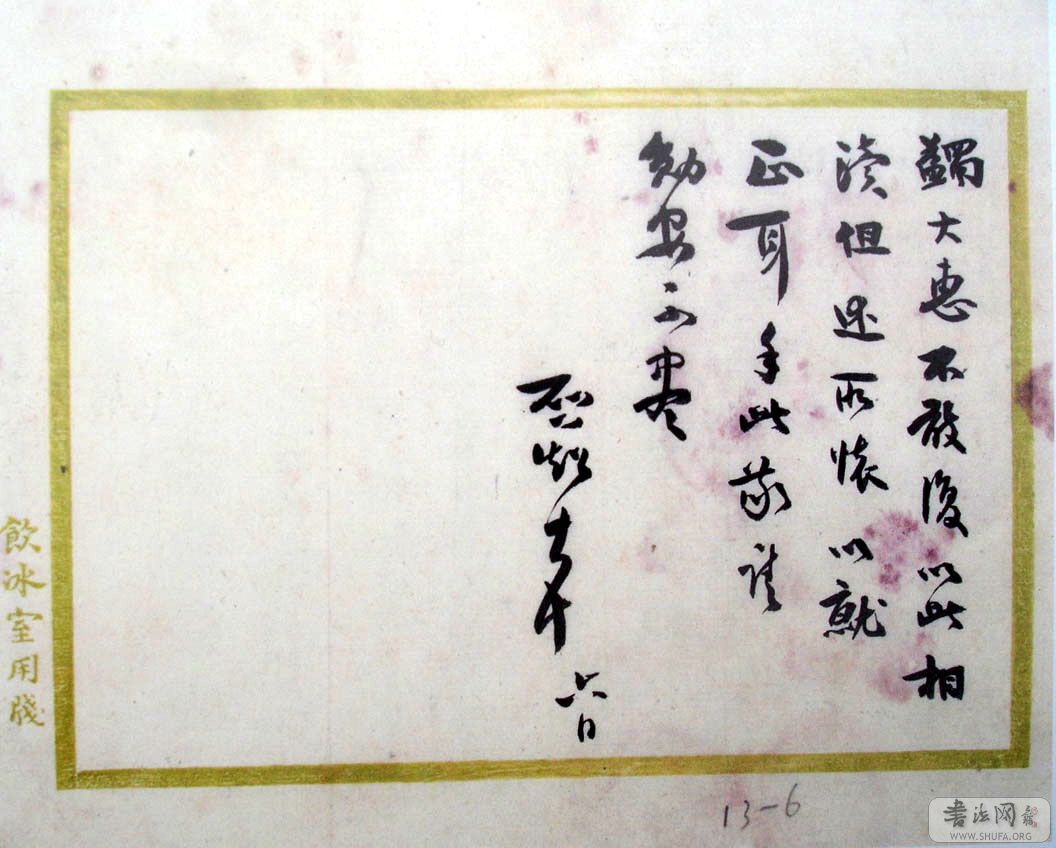 蠲大惠不敢復以此相
瀆但述所懷以就
正耳手此敬請
勛安不盡
啓超 六日
飲冰室用牋
13-6
书法网
WWW.SHUFA.ORG